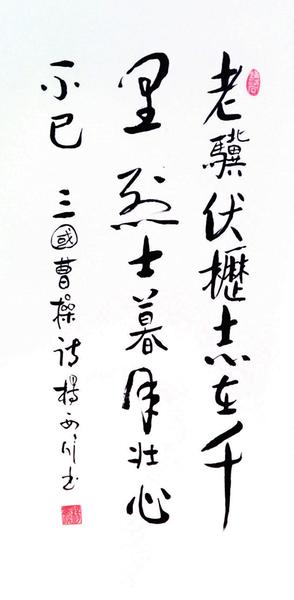 老驥伏櫪志在千
里 烈士暮年壮心
不已 三國曹操诗楊书